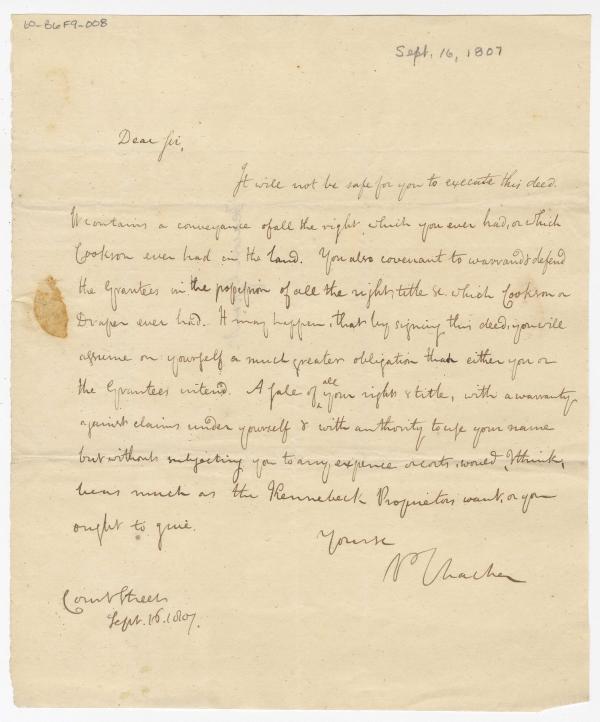 60-B6F9-008
Sept. 16, 1807
Dear Sir,
It will not be safe for you to execute this deed.
It contains a conveyance of all the right which you ever had, or which
Cookson ever had in the land. You also covenant to warrand & defend
the Grantees in the possession of all the right, title &c. which Cookson or
Draper ever had. It may happen, that by signing this deed, you will
assume on yourself a much greater obligation than either you or
the Grantees intend. A sale of all your right & title, with a warranty
against claims under yourself & with authority to use your name
but without subjecting you to any expence or costs, would, I think,
be as much as the Kennebeck Proprietors want, or you
ought to give.
Yours &c
P Thacher
Court Street
Sept. 16. 1807.